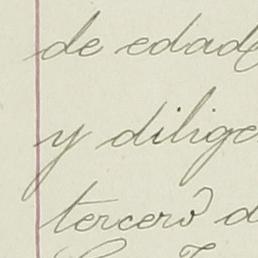 de edad
y dilige
tercero d